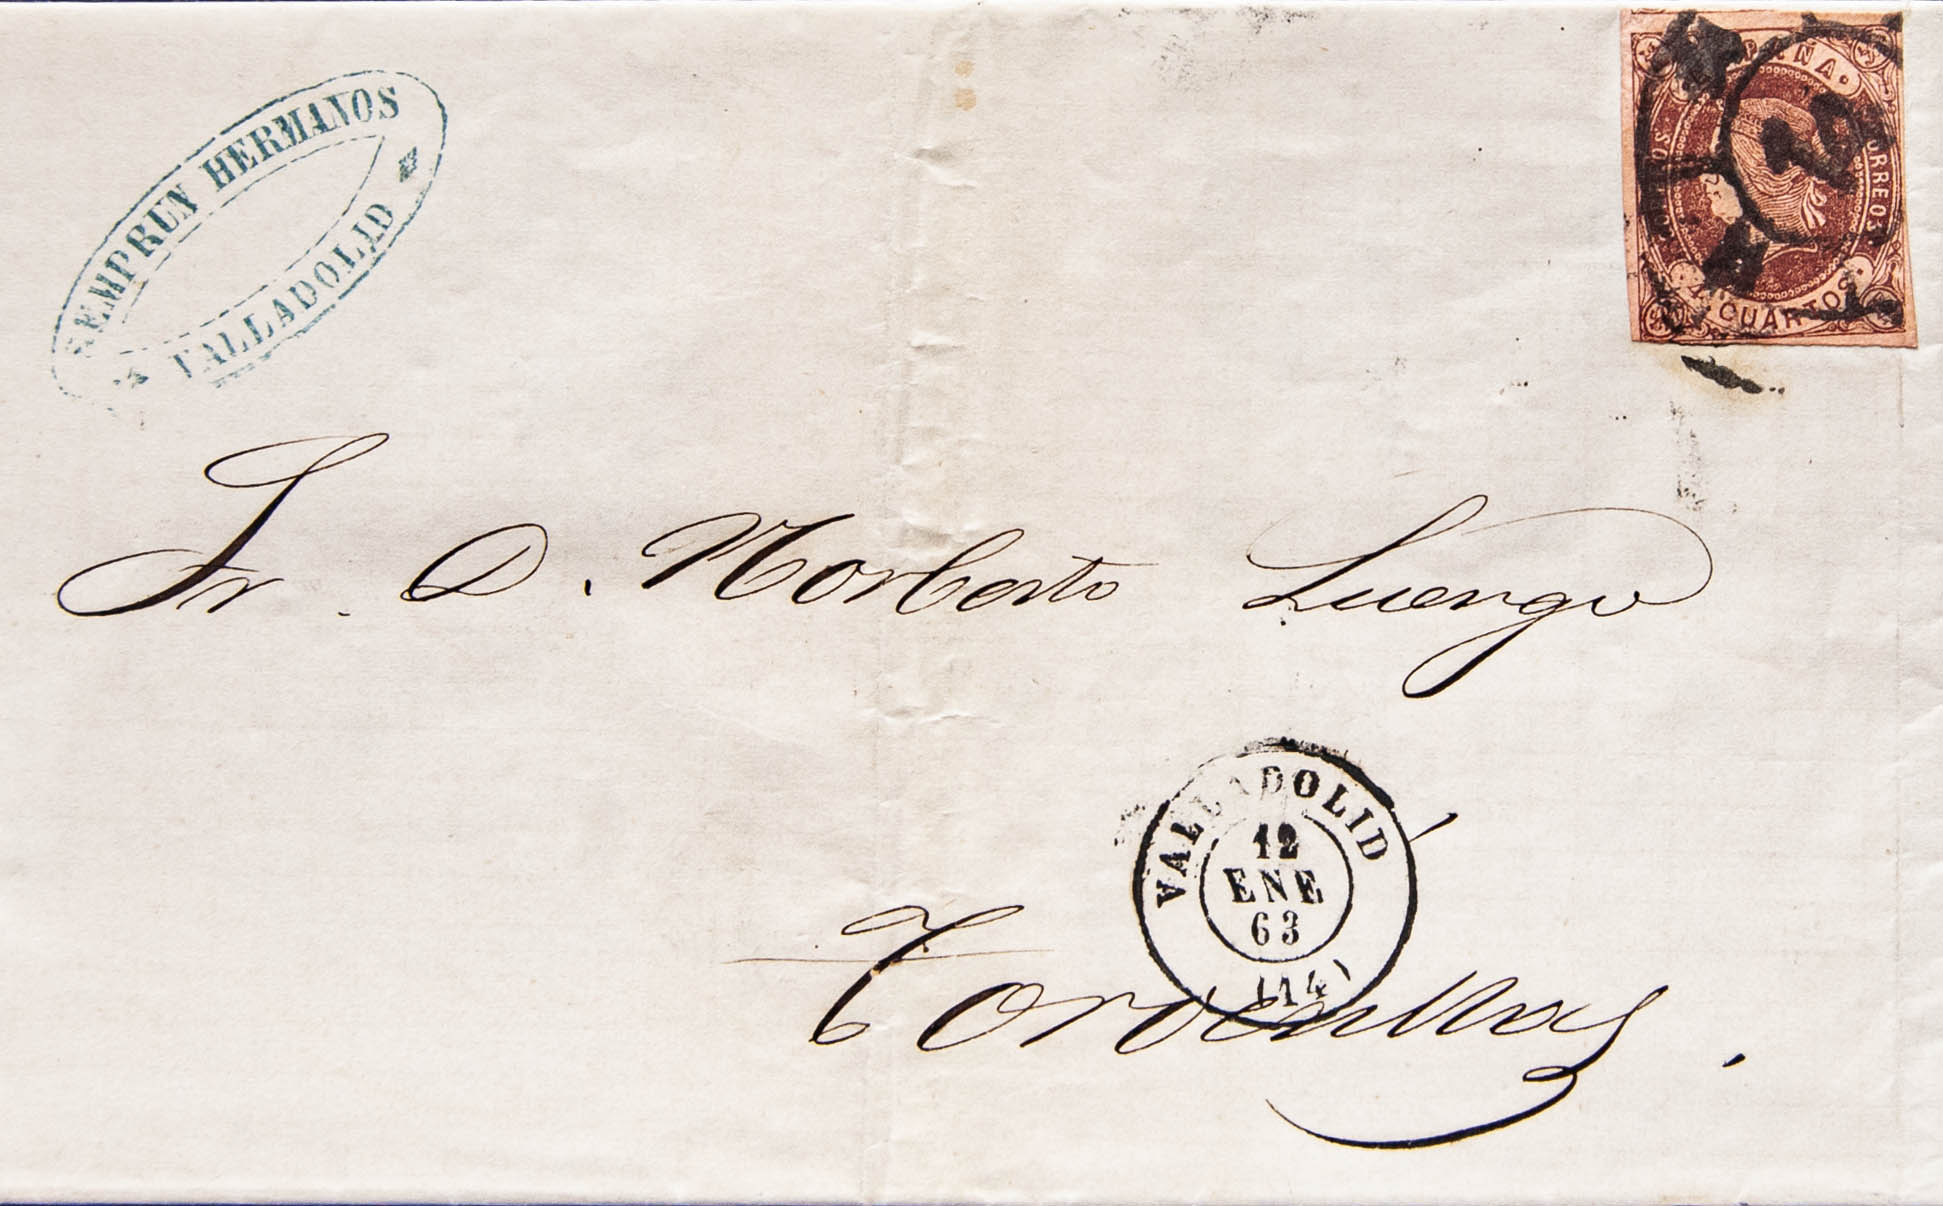 SEMPRUN HERMANOS
VALLADOLID
ESPAÑA.
CORREOS. CORREOS.
4 CUARTOS
2
Sr. D. Norberto Luengo
VALLADOLID
12
ENE
63
(14)
Tordesillas.